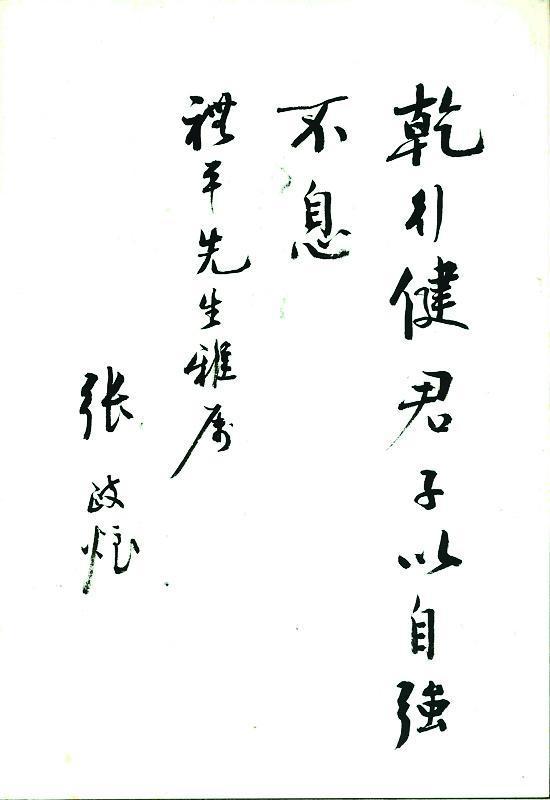 乾行健君子以自強
不息
禮平先生雅属
张政烺